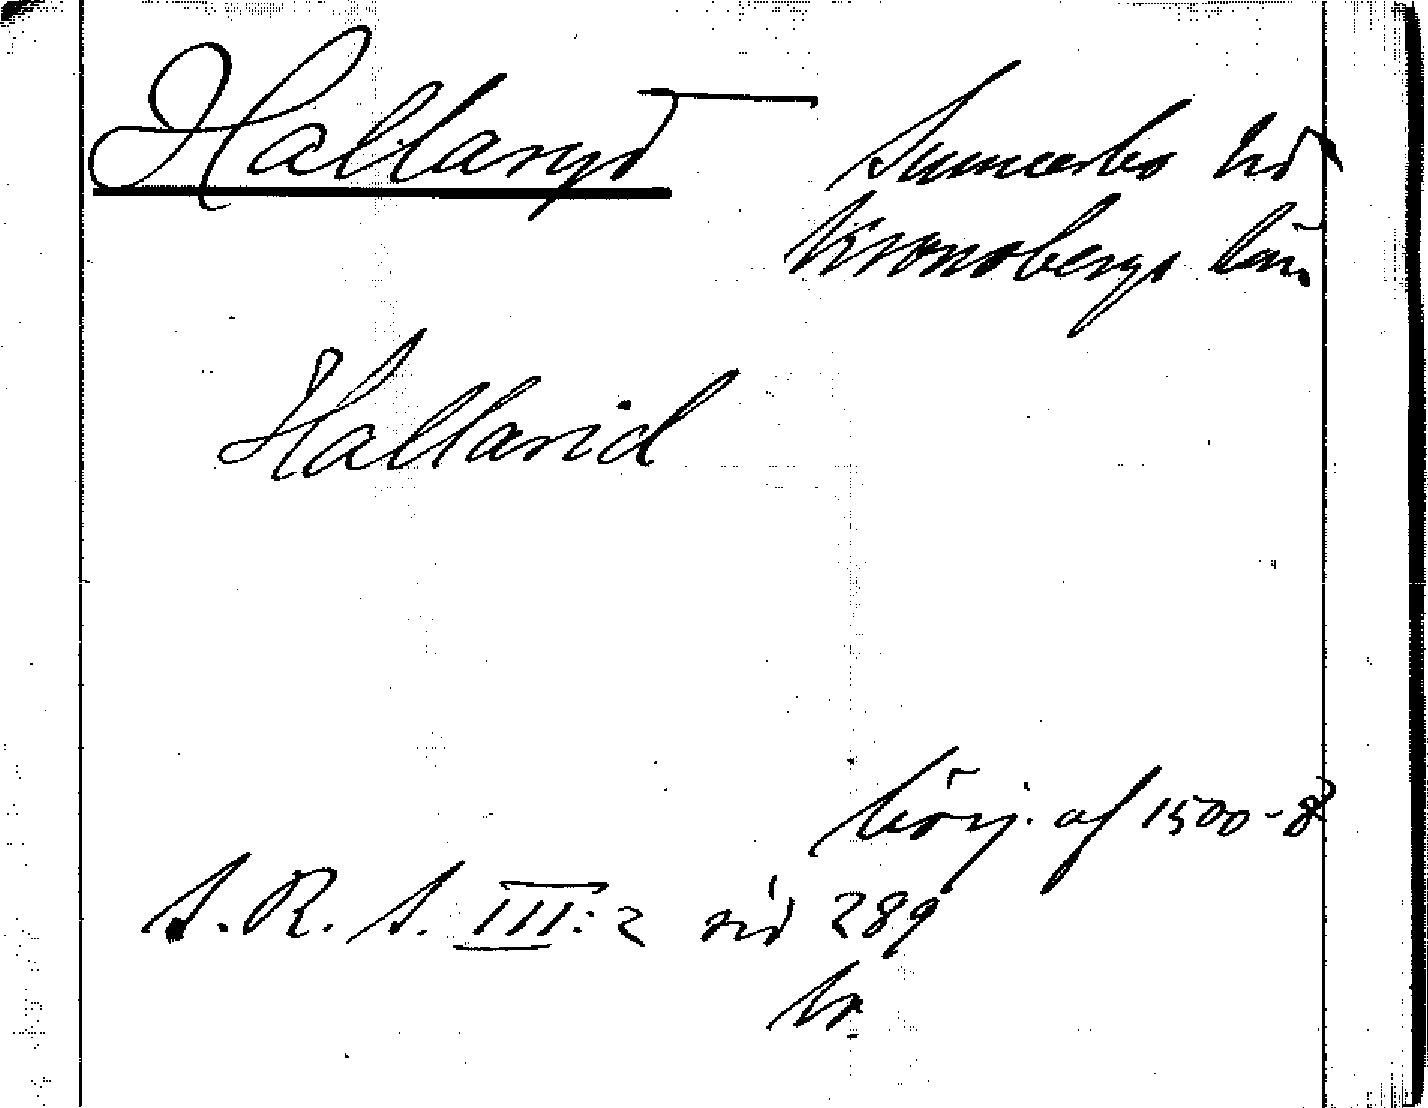 Hallaryd Sunnerbo hd
Kronobergs län
Hallarid
börj. af 1500-t
S. R. S. III:2 sid 289